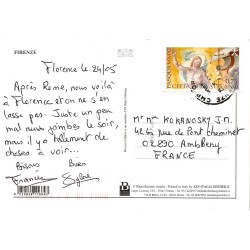 FIRENZE
Florence le 24/05
Après Rome, nous voilà
à Florence et on ne s'en
lasse pas. Juste un peu
mal aux jambes le soir,
mais il y a tellement de
choses à voir...
Bisous Bises
Francis Sylvie
Mr Mme KOKANOSKY J.M.
42 rue de Pont cheminet
02890 Amblény
FRANCE